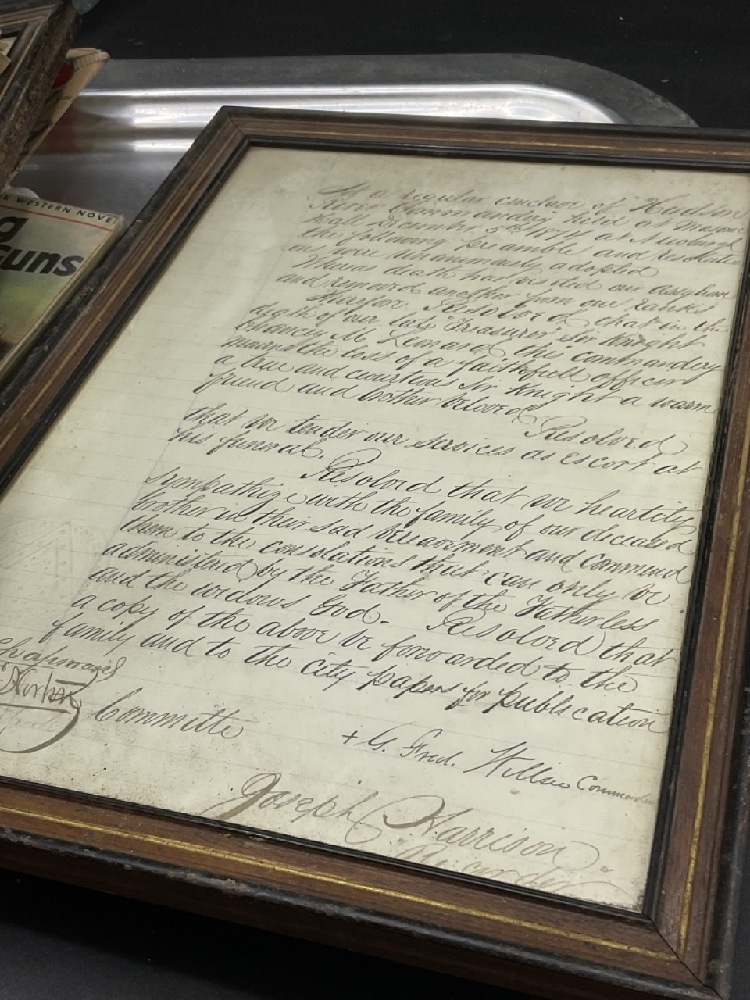 WESTERN NOVEL
Guns
At a regular conclave of "Hudson
River Commandery" held at Masonic
Hall December 5th at Newburgh
the following Preamble and Resoluti
ons were unanimously adopted
Whereas death has visited our asylum
and removed another from our ranks
therefore Resolved, that in the
death of our late Treasurer Sir Knight
Chauncey M. Leonard this commandery
mourns the loss of a faithfull officer
a true and courteous Sir Knight a warm
friend and brother beloved. Resolved
that we tender our services as escort at
his funeral.
Resolved that we heartily
sympathize with the family of our deceased
brother in their sad bereavement and commend
them to the consolations that can only be
administered by the Father of the Fatherless
and the widows God. Resolved that
a copy of the above be forwarded to the
family and to the city papers for publication
Committe
+ G. Fred. Commander
Joseph Harrison
Recorder